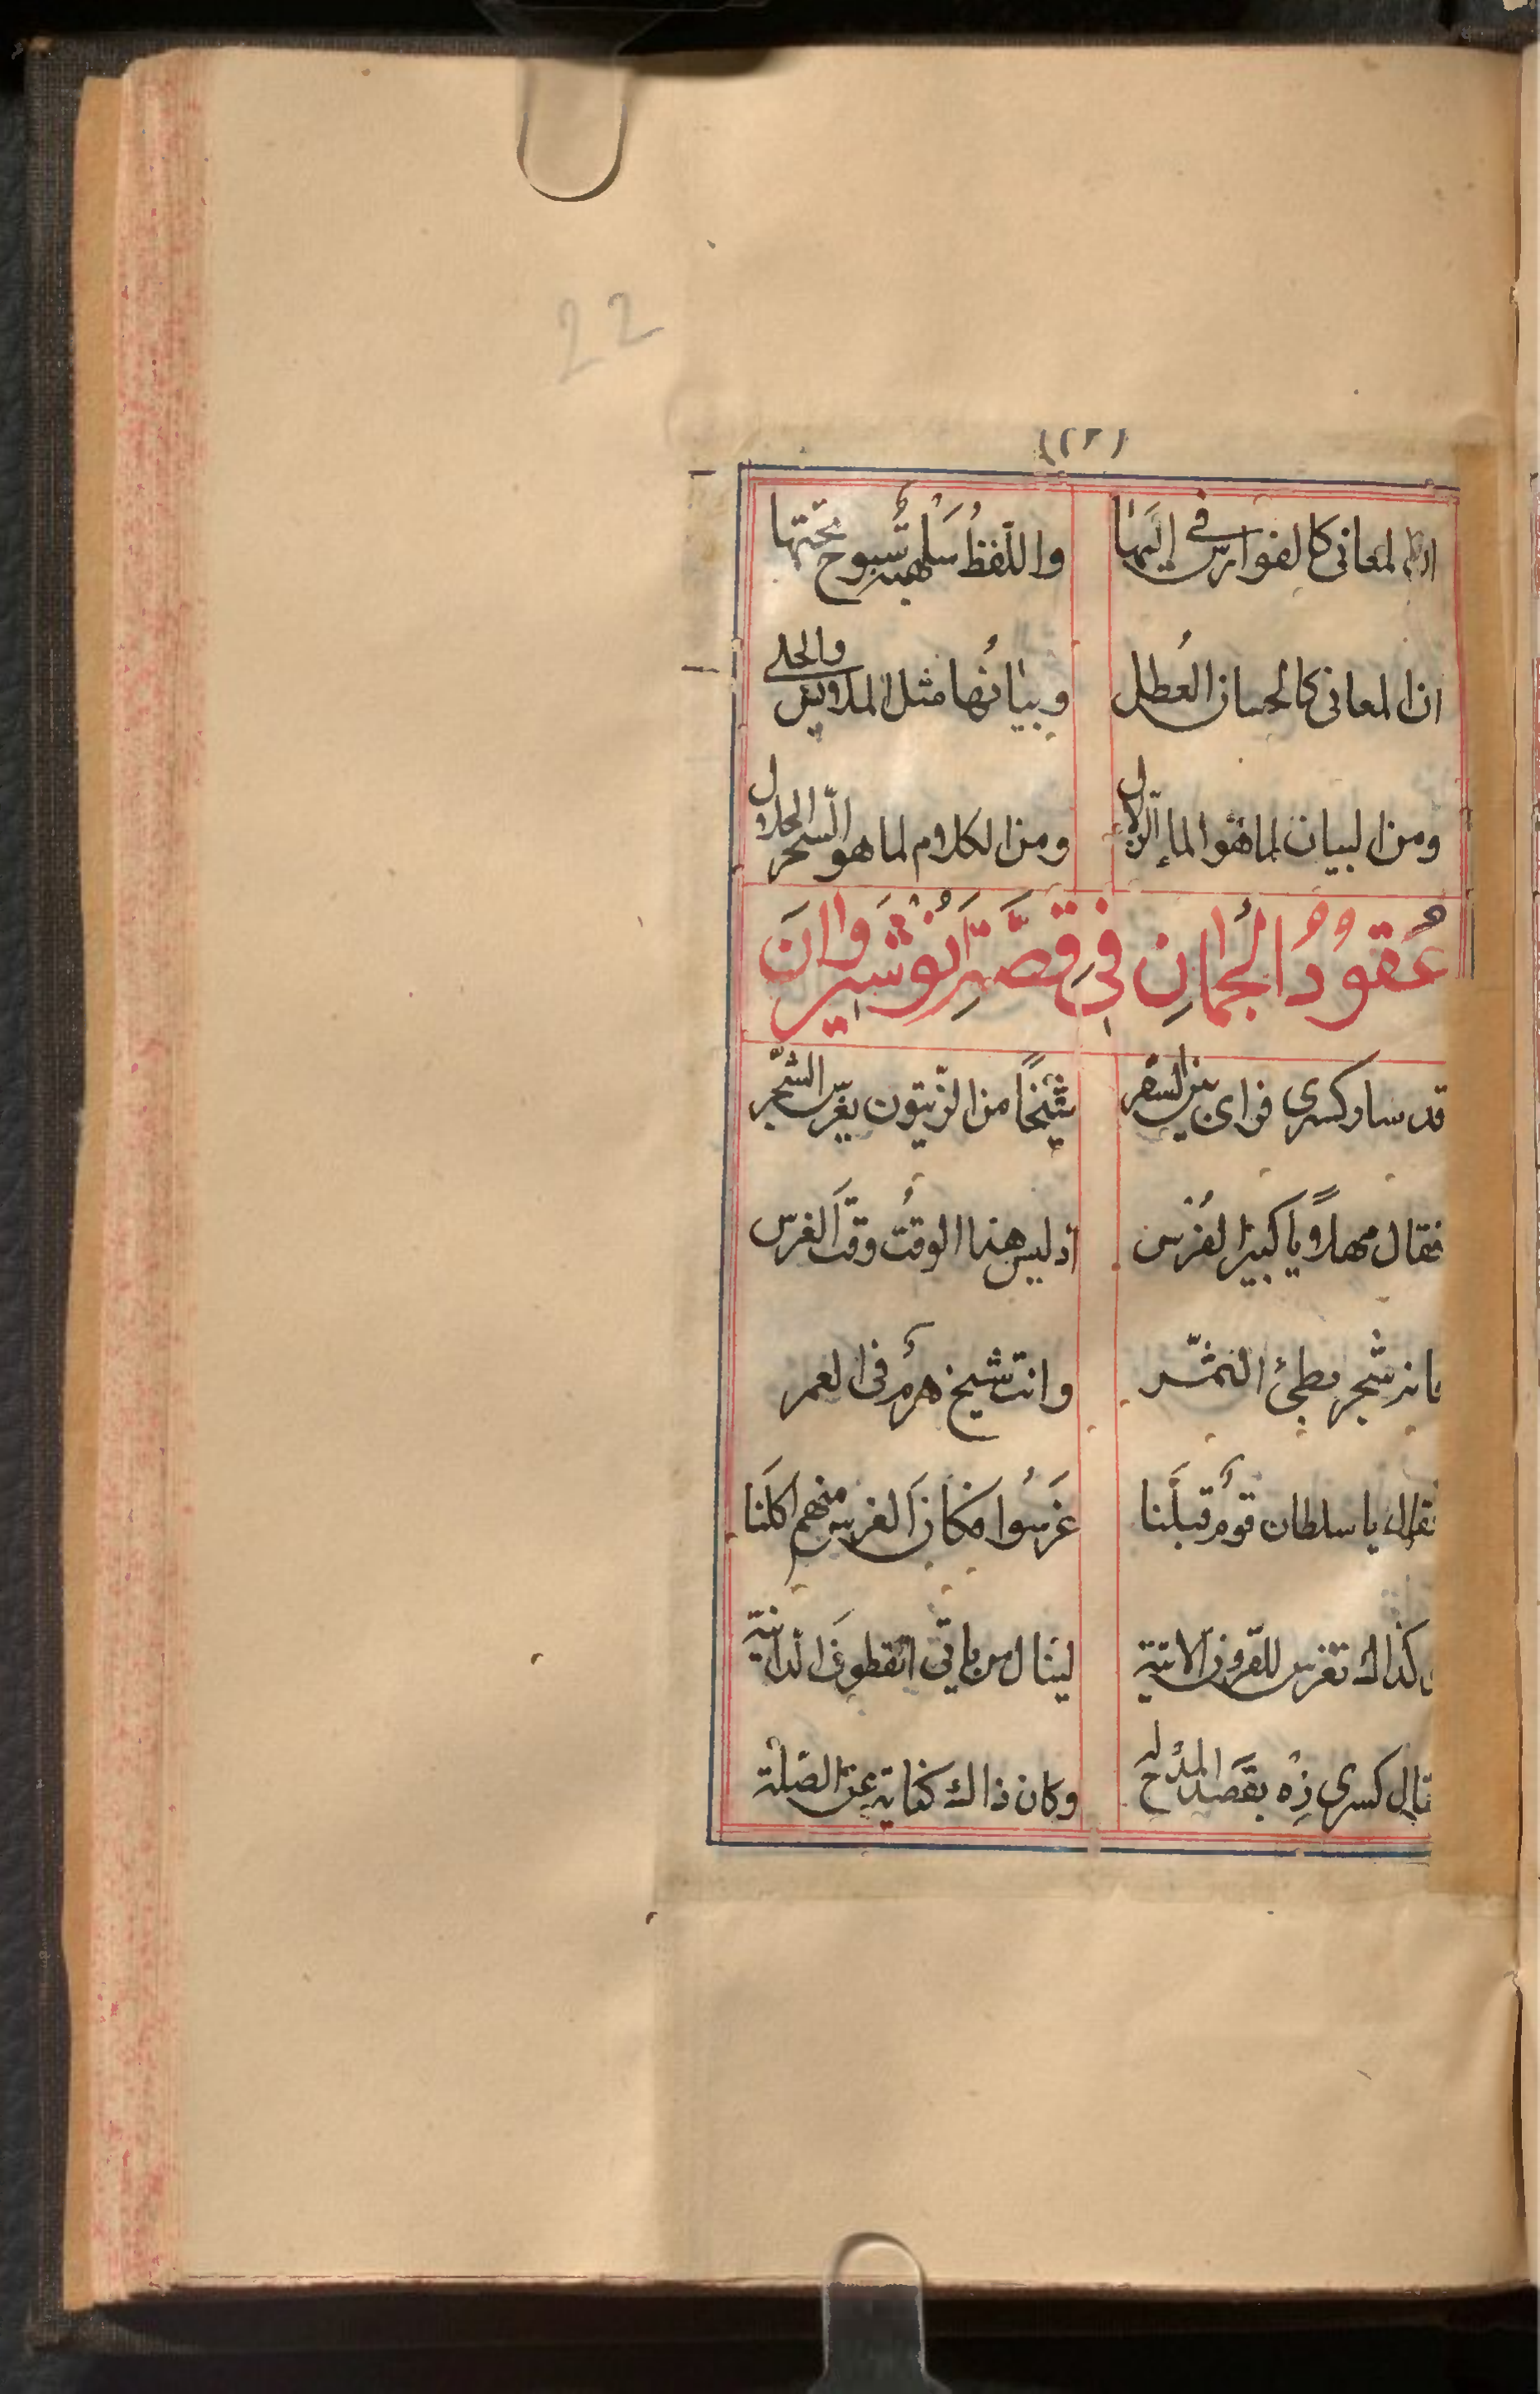 22
(٢٢)
المعانى كالفوارس فى إليها واللّفظُ سلهبة سَبوح تحتها
ان المعانى كالحسان العُطل وبيانُها مثل الملابس والحلى
ومن البيان لما هو الماء الزلال ومن الكلام لما هو السّحر الحلال
عُقُودُ الجُمانِ فى قصَّةِ اَنُوْشَيروانَ
قد سار كسرى فراى بين السفر شَيْخًا من الزّيتون يغرس الشّجر
فقال مهلاً يا كبير الفُرْس اذ ليس هذا الوقتُ وقتَ الغرس
شجر مطئ الثّمر وانت شيخ هرمٌ فى العمر
فقال يا سلطان قومٌ قبلَنا غَرسُوا فكانَ الغرس منهم اكلَنا
كذاك نغرس للقرون الاتية لينال من ياتى القطوفَ الدانية
قال كسرى زِهْ بقصد المدْح له وكان ذاك كناية عن الصّلة